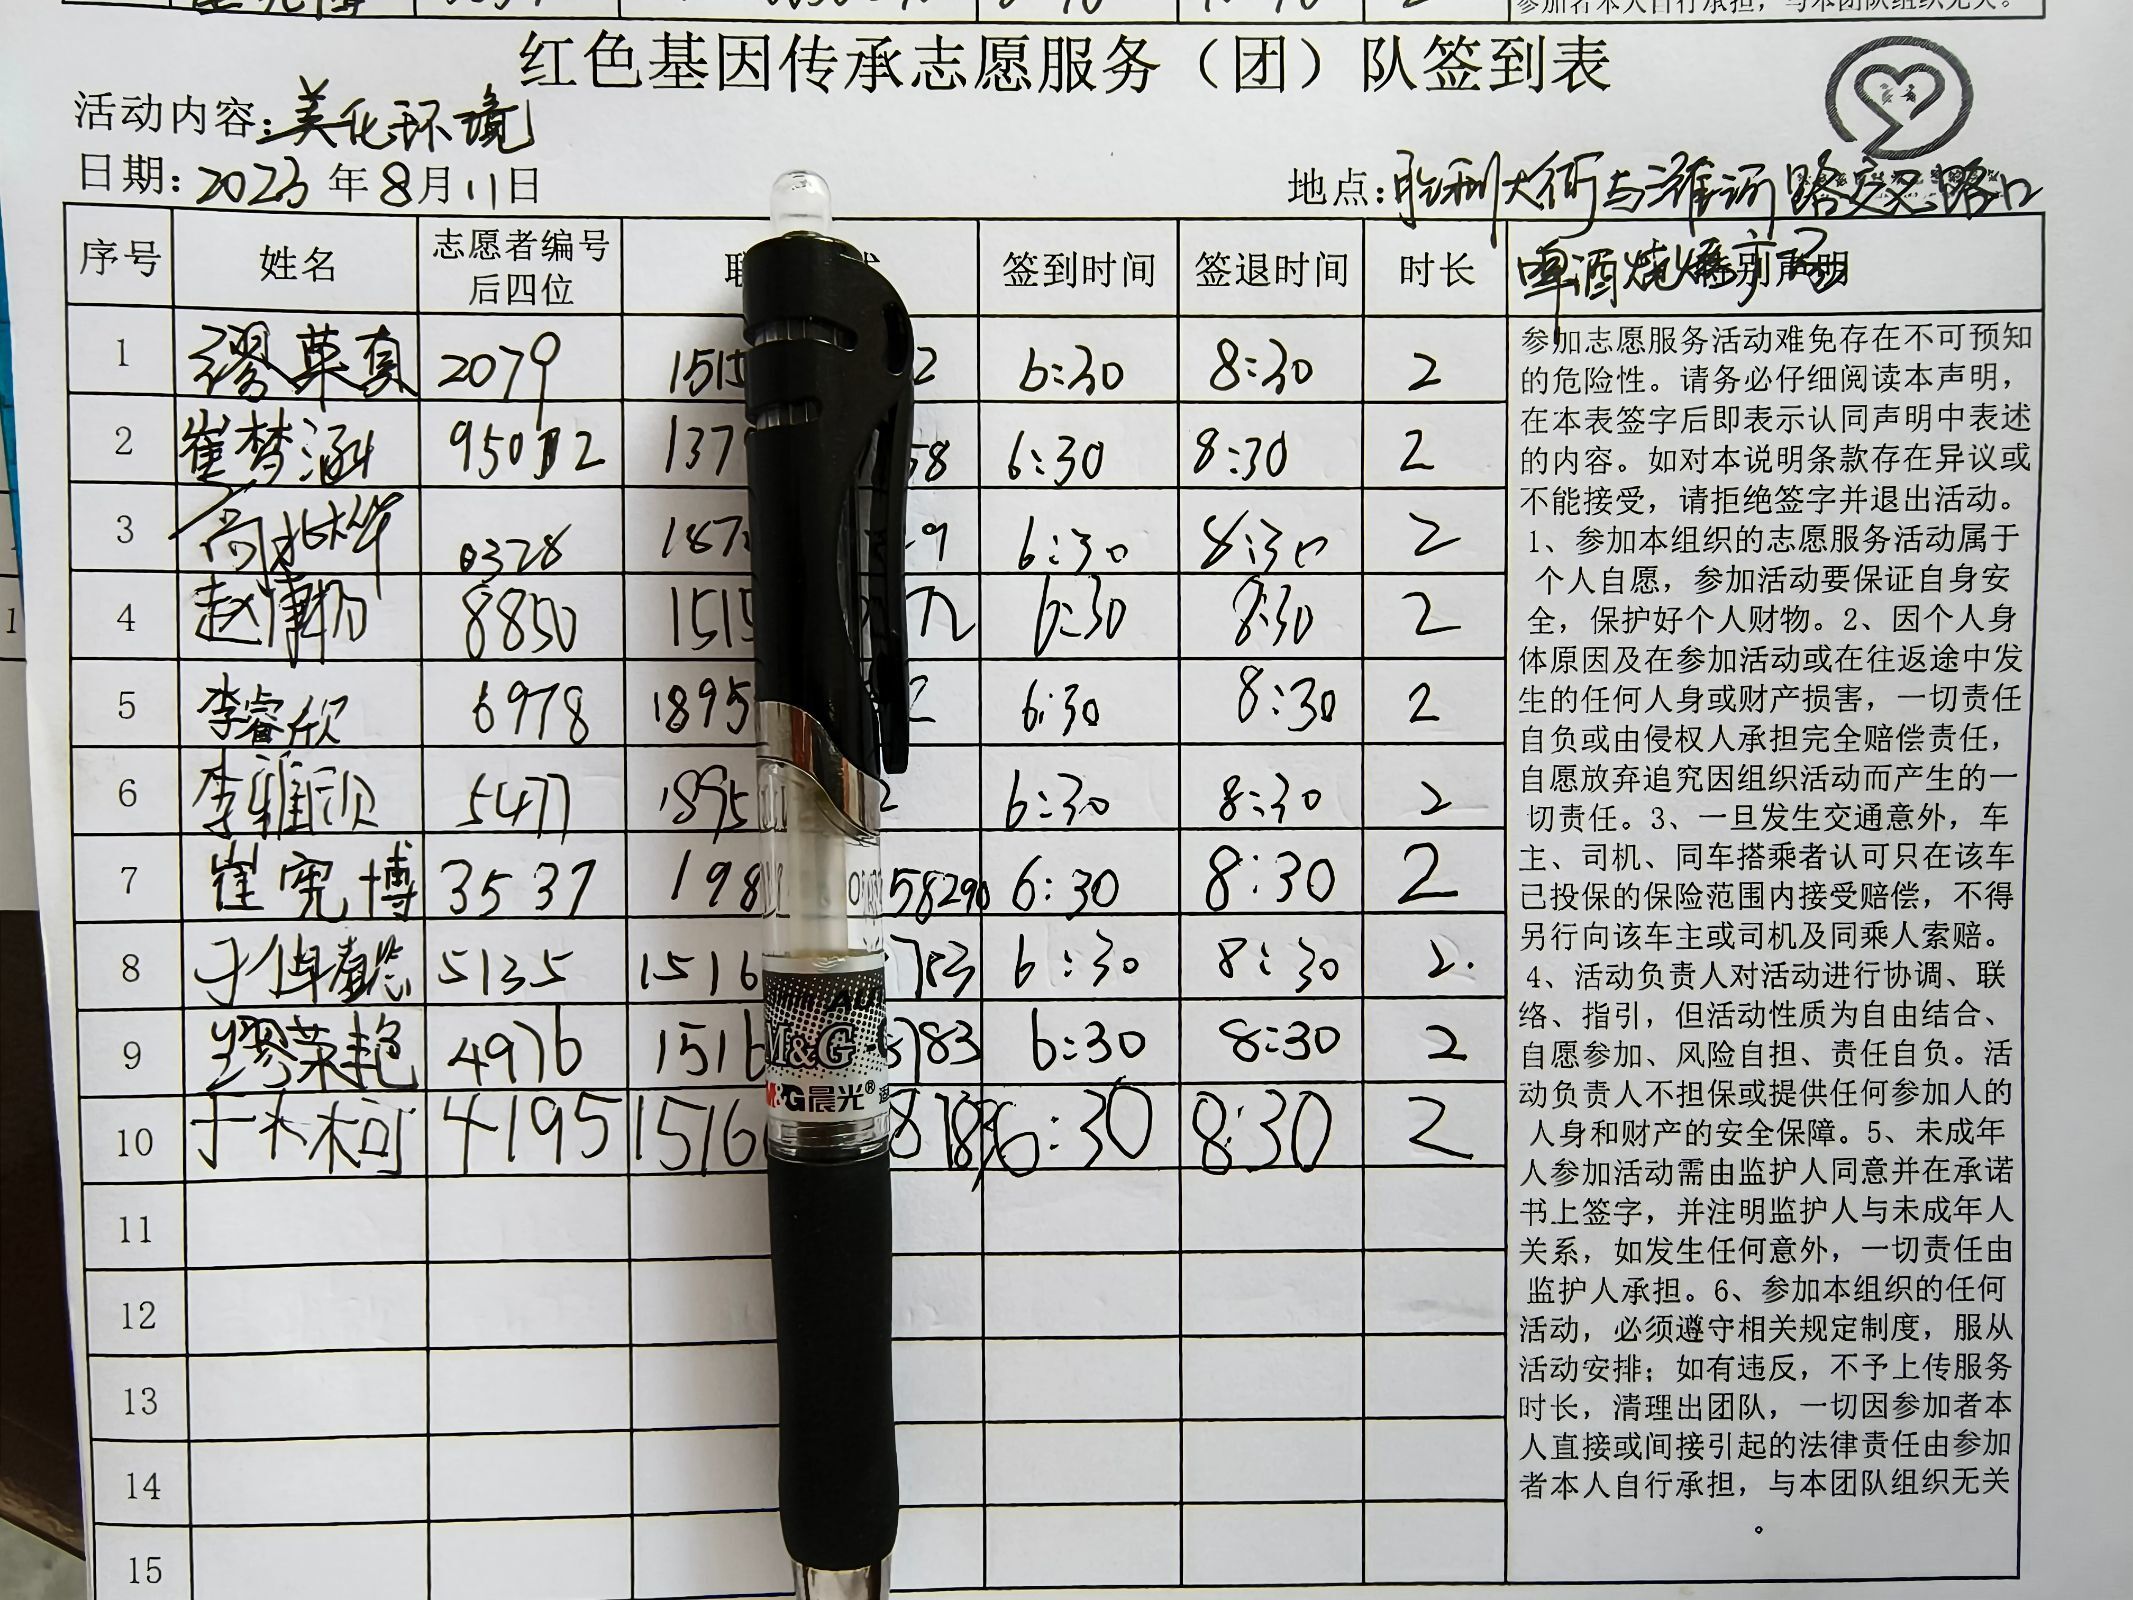 参加者本人自行承担，与本团队组织无关。
红色基因传承志愿服务（团）队签到表
活动内容：美化环境
日期：2023年8月11日
地点：胜利大街与潍河路交叉路口
啤酒烧烤亭子
序号 姓名 志愿者编号后四位 联 式 签到时间 签退时间 时长 特别声明
1 缪荣真 2079 1515 2 6:30 8:30 2
2 崔梦涵 1379 58 6:30 8:30 2
3 0328 187 9 6:30 8:30 2
4 赵 8850 1515 6:30 8:30 2
5 李睿欣 6978 1895 2 6:30 8:30 2
6 李雅 5477 1895 2 6:30 8:30 2
7 崔宪博 3537 198 58290 6:30 8:30 2
8 于 5135 1516 783 6:30 8:30 2.
9 缪荣艳 4976 1516 3783 6:30 8:30 2
10 于 可 4195 1516 6:30 8:30 2
11
12
13
14
15
参加志愿服务活动难免存在不可预知
的危险性。请务必仔细阅读本声明，
在本表签字后即表示认同声明中表述
的内容。如对本说明条款存在异议或
不能接受，请拒绝签字并退出活动。
1、参加本组织的志愿服务活动属于
个人自愿，参加活动要保证自身安
全，保护好个人财物。2、因个人身
体原因及在参加活动或在往返途中发
生的任何人身或财产损害，一切责任
自负或由侵权人承担完全赔偿责任，
自愿放弃追究因组织活动而产生的一
切责任。3、一旦发生交通意外，车
主、司机、同车搭乘者认可只在该车
已投保的保险范围内接受赔偿，不得
另行向该车主或司机及同乘人索赔。
4、活动负责人对活动进行协调、联
络、指引，但活动性质为自由结合、
自愿参加、风险自担、责任自负。活
动负责人不担保或提供任何参加人的
人身和财产的安全保障。5、未成年
人参加活动需由监护人同意并在承诺
书上签字，并注明监护人与未成年人
关系，如发生任何意外，一切责任由
监护人承担。6、参加本组织的任何
活动，必须遵守相关规定制度，服从
活动安排；如有违反，不予上传服务
时长，清理出团队，一切因参加者本
人直接或间接引起的法律责任由参加
者本人自行承担，与本团队组织无关
。
M&G
M&G晨光®